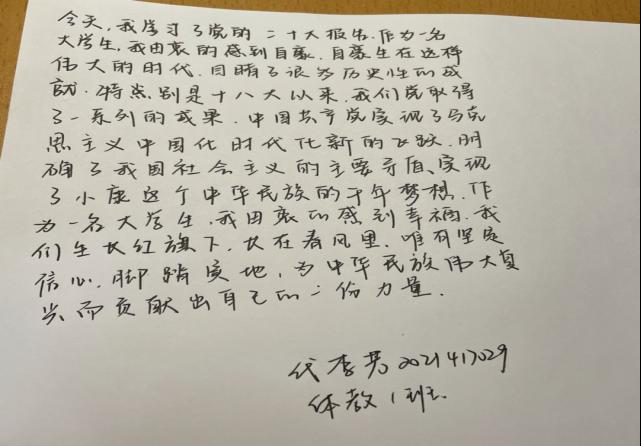 今天,我学习了党的二十大报告.作为一名
大学生,我由衷的感到自豪.自豪生在这样
伟大的时代.目睹了很多历史性的成
就.特别是十八大以来.我们党取得
了一系列的成果.中国共产党实现了马克
思主义中国化时代化新的飞跃.明
确了我国社会主义的主要矛盾、实现
了小康这个中华民族的千年梦想.作
为一名大学生.我由衷的感到幸福.我
们生长红旗下,长在春风里.唯有坚定
信心.脚踏实地,为中华民族伟大复
兴而贡献出自己的一份力量.
代李芳2021417029
体教1班.